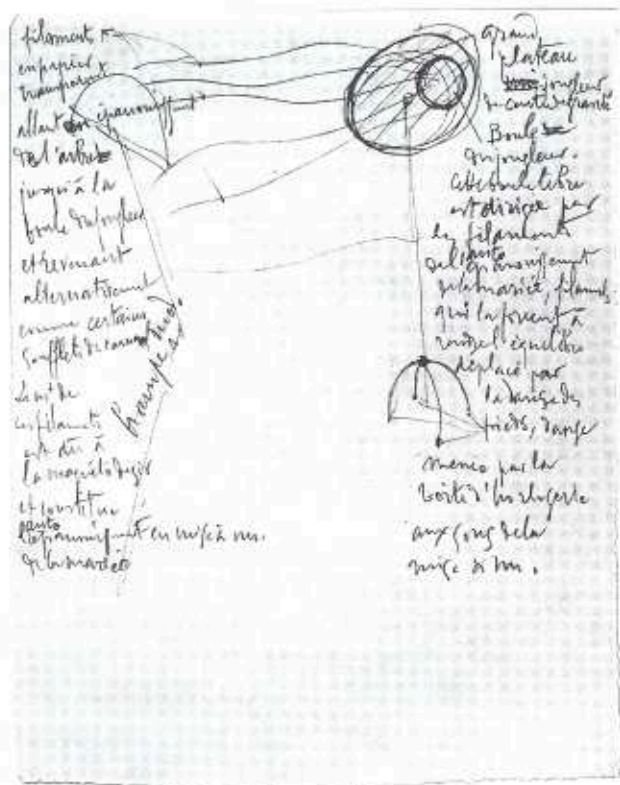 filaments
en papier
transparent
allant en épanouissant
de l'arbre
jusqu'à la
boule du jongleur
et revenant
alternativement
comme certains
soufflets de
de
ces filaments
est dû à
la magnéto désir
et constitue
l'auto
épanouissement en mise à nu.
de la mariée
hampe
Grand
plateau
jongleur
de centre de gravité
Boule
du jongleur.
Cette boule libre
est dirigée par
les filaments
de l'auto
épanouissement
de la mariée, filaments
qui la forcent à
rendre l'équilibre
déplacé par
la danse des
pieds, danse
menée par la
boîte d'horlogerie
aux de la
mise à nu.